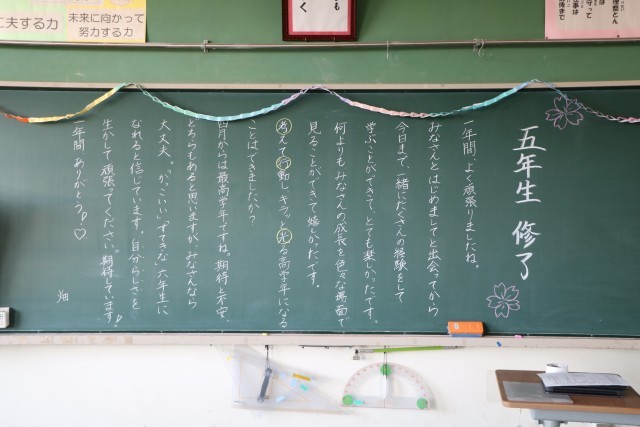 に夫する力
未来に向かって
努力する力
五年生 修了
一年間、よく頑張りましたね。
みなさんとはじめましてと出会ってから
今日まで、一緒にたくさんの経験をして
学ぶことができて、とても楽しかったです。
何よりもみなさんの成長を色々な場面で
見ることができて嬉しかったです。
考えて行動し、キラッと光る高学年になる
ことはできましたか？
四月からは最高学年ですね。期待と不安、
どちらもあると思いますが、みなさんなら
大丈夫。"かっこいい""すてきな"六年生に
なれると信じています。自分らしさを
生かして頑張ってください。期待しています!
一年間 ありがとう♡
畑